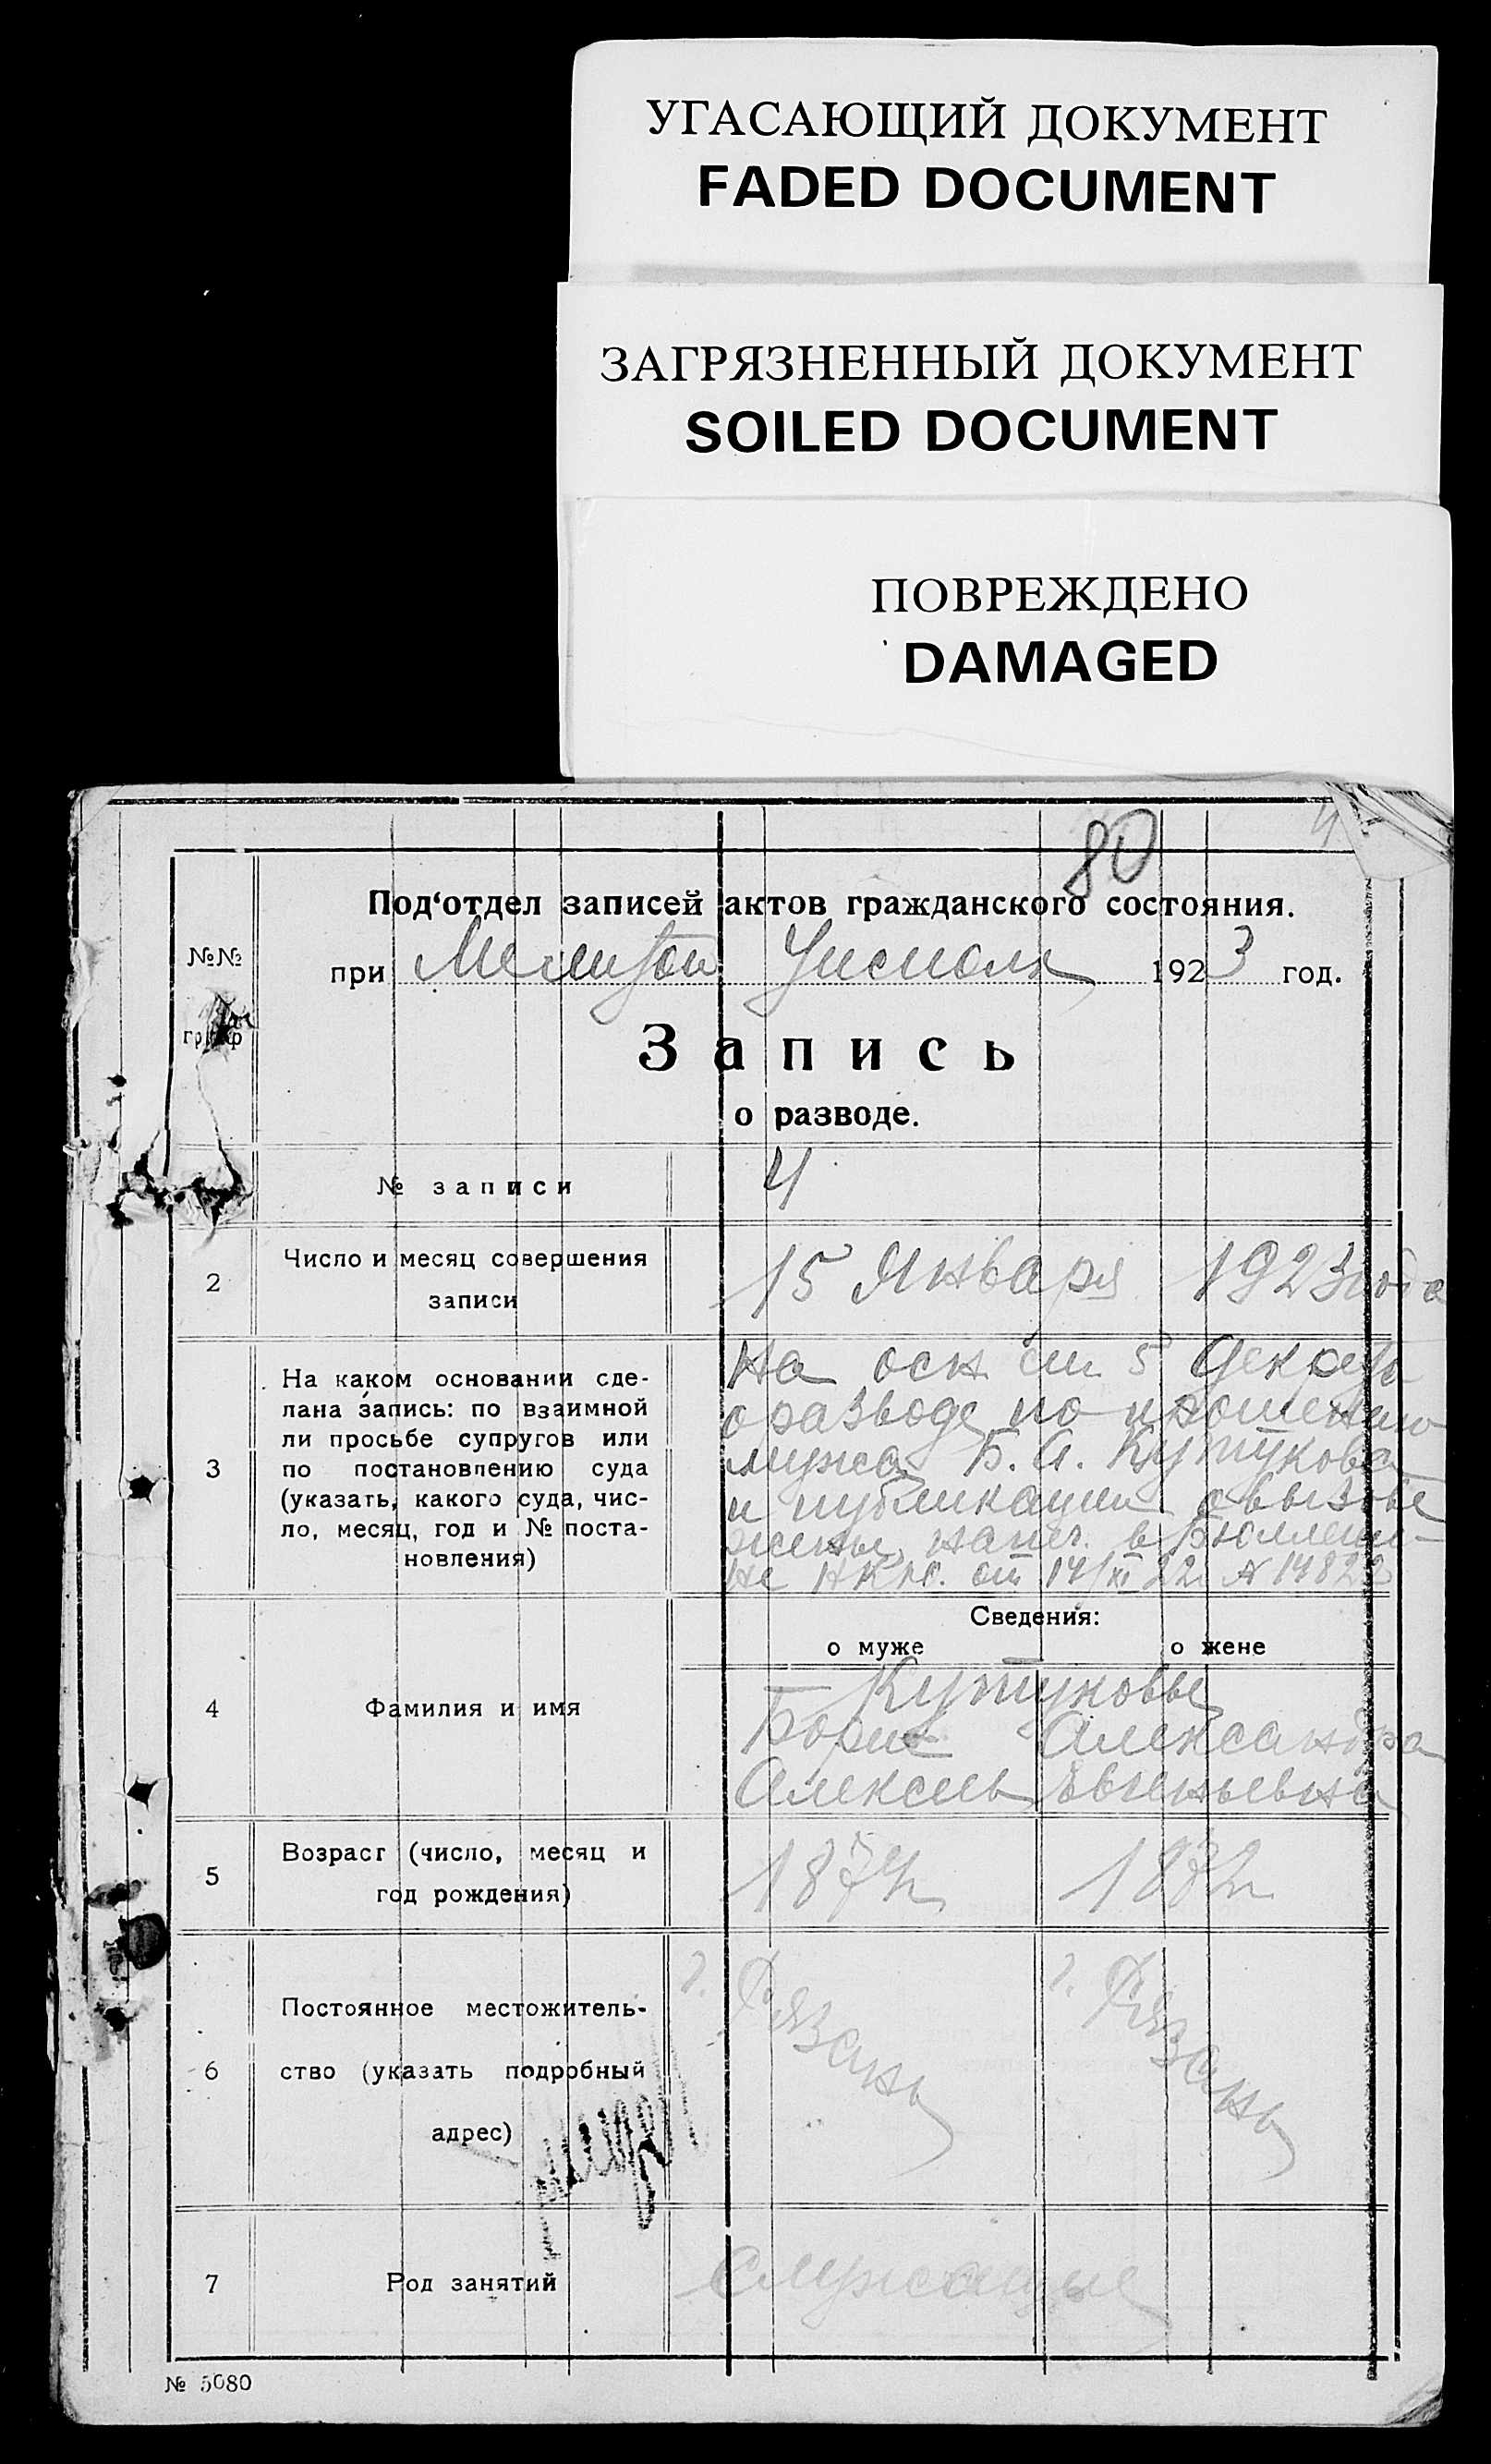 УГАСАЮЩИЙ ДОКУМЕНТ
FADED DOCUMENT
ЗАГРЯЗНЕННЫЙ ДОКУМЕНТ
SOILED DOCUMENT
ПОВРЕЖДЕНО
DAMAGED
4
80
Под‘отдел записей актов гражданского состояния.
№№
граф
при Исполк 1923 год.
Запись
о разводе.
№ записи
4
2
Число и месяц совершения
записи
15 Января 1923 года
3
На каком основании сде-
лана запись: по взаимной
ли просьбе супругов или
по постановлению суда
(указать, какого суда, чис-
ло, месяц, год и № поста-
новления)
На осн ст 5 Декрета
о разводе по прошению
мужа Б. А. Кутукова
и публикации о вызове
жены, напеч. в Бюллете-
не НКЮ. от 14/XI 22 № 14822
Сведения:
о муже о жене
4
Фамилия и имя
Кутуковы
Борис Александра
Алексеев Евгеньевна
5
Возраст (число, месяц и
год рождения)
1874 г 1882 г
6
Постоянное местожитель-
ство (указать подробный
адрес)
г. Рязань г. Рязань
7
Род занятий
Служащие
№ 5080